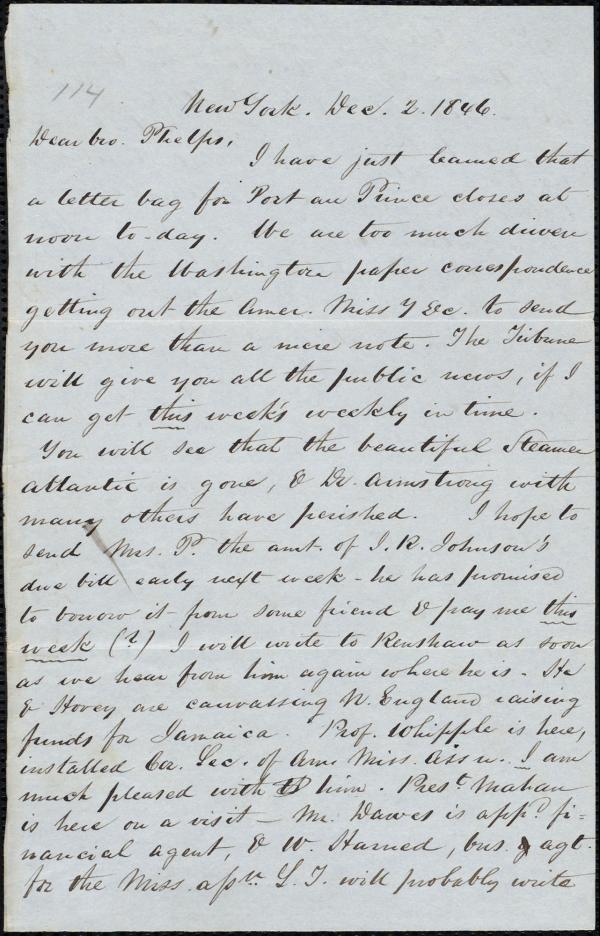 114
New York. Dec. 2. 1846.
Dear bro. Phelps,
I have just learned that
a letter bag for Port au Prince closes at
noon to-day. We are too much driven
with the Washington paper correspondence
getting out the Amer. Miss y &c. to send
you more than a mere note. The Tribune
will give you all the public news, if I
can get this week's weekly in time.
You will see that the beautiful Steamer
Atlantic is gone, & Dr. Armstrong with
many others have perished. I hope to
send Mrs. P. the amt. of J. R. Johnson's
due bill early next week - he has promised
to borrow it from some friend & pay me this
week (?) I will write to Renshaw as soon
as we hear from him again where he is. He
& Hovey are canvassing N. England raising
funds for Jamaica. Prof. Whipple is here,
installed Cor. Sec. of Am. Miss. Assn. I am
much pleased with him. Prest. Mahan
is here on a visit - Mr. Dawes is appd. fi-
nancial agent, & W. Harned, bus. agt.
for the Miss. apn L. T. will probably write